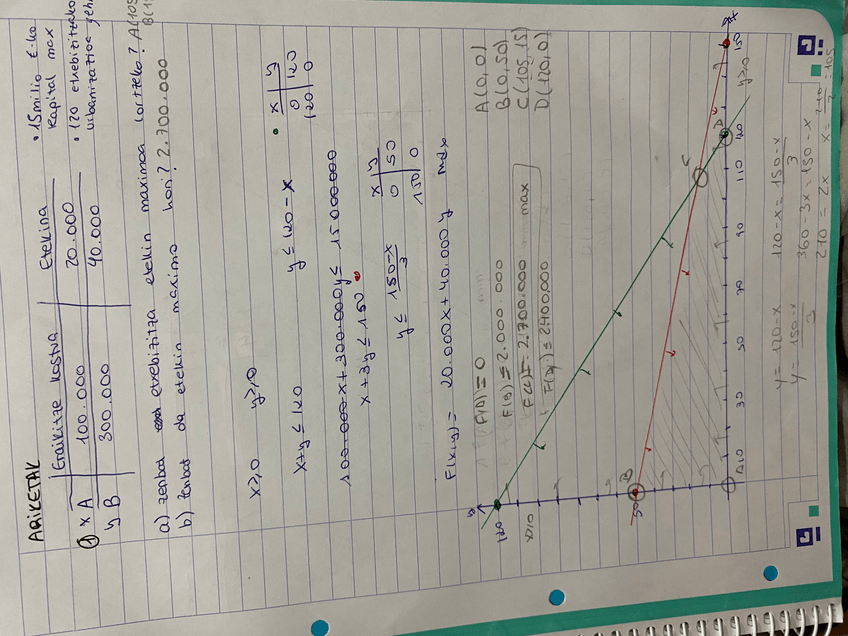 ARIKETAK
Eraikitze kostua Etekina
① x A 100.000 20.000
y B 300.000 40.000
• 15 milio €-ko
kapital max
• 120 etxebizitzako
urbanizatioa
a) zenbat etxebizitza etekin maximoa lortzeko? A(105
B(15
b) zenbat da etekin maximo hori? 2.700.000
x≥0 y≥0
x+y ≤ 120 y ≤ 120-x
x y
0 120
120 0
100.000x + 300.000y ≤ 15000000
x+3y ≤ 150
y ≤ 150-x / 3
x y
0 50
150 0
F(x,y) = 20.000x + 40.000y max
F(A) = 0 min
F(B) = 2.000.000
F(C) = 2.700.000 max
F(D) = 2400.000
A(0,0)
B(0,50)
C(105,15)
D(120,0)
y
120
x≥0
50 B
C
A D x
10 30 50 70 90 110 120 150
y≥0
y = 120-x
y = 150-x / 3
120-x = 150-x / 3
360-3x = 150-x
210 = 2x x = 210 / 2 = 105